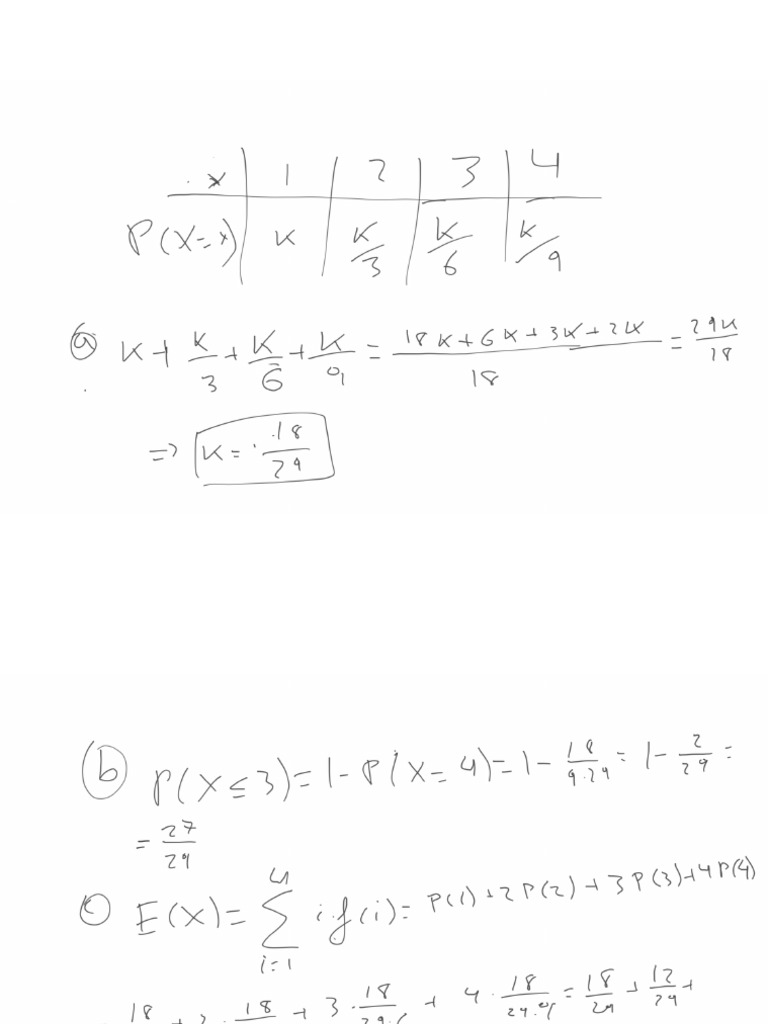 x | 1 | 2 | 3 | 4
P(X=x) | K | K/3 | K/6 | K/9
ⓐ K + K/3 + K/6 + K/9 = (18K+6K+3K+2K)/18 = 29K/18
=> K = 18/29
ⓑ P(X≤3) = 1-P(X=4) = 1 - 18/(9·29) = 1 - 2/29 =
= 27/29
ⓒ E(X) = ∑_{i=1}^{4} i·f(i) = P(1)+2P(2)+3P(3)+4P(4)
18 + 2 · 18 + 3 · 18/(29·6 + 4 · 18/(29·9) = 18/29 + 12/29 +